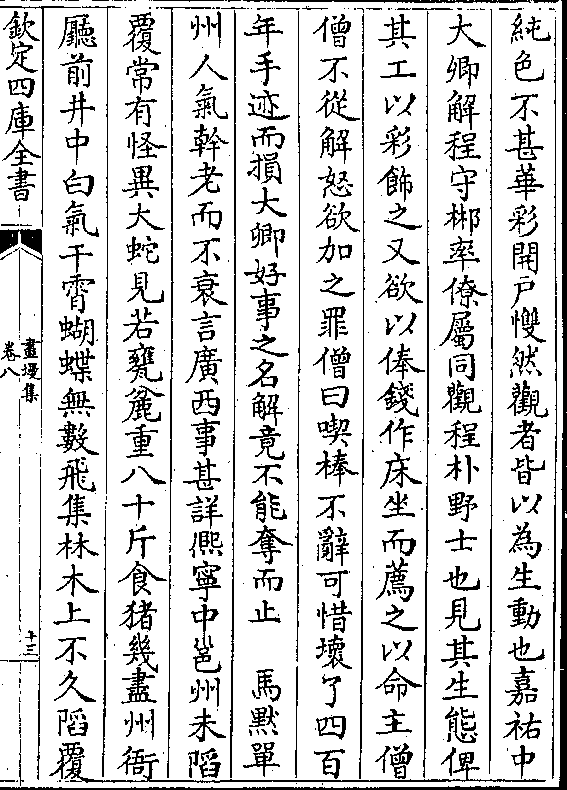 純色不甚華彩開戸戄然觀者皆以為生動也嘉祐中
大卿解程守郴率僚屬同觀程朴野士也見其生態俾
其工以彩飾之又欲以俸錢作床坐而薦之以命主僧
僧不從解怒欲加之罪僧曰喫棒不辭可惜壞了四百
年手迹而損大卿好事之名解竟不能奪而止　馬黙單
州人氣幹老而不衰言廣西事甚詳熈寧中邕州未䧟
覆常有怪異大蛇見若甕麄重八十斤食猪幾盡州衙
廳前井中白氣干霄蝴蝶無數飛集林木上不久䧟覆
欽定四庫全書
畫墁集
卷八
十三